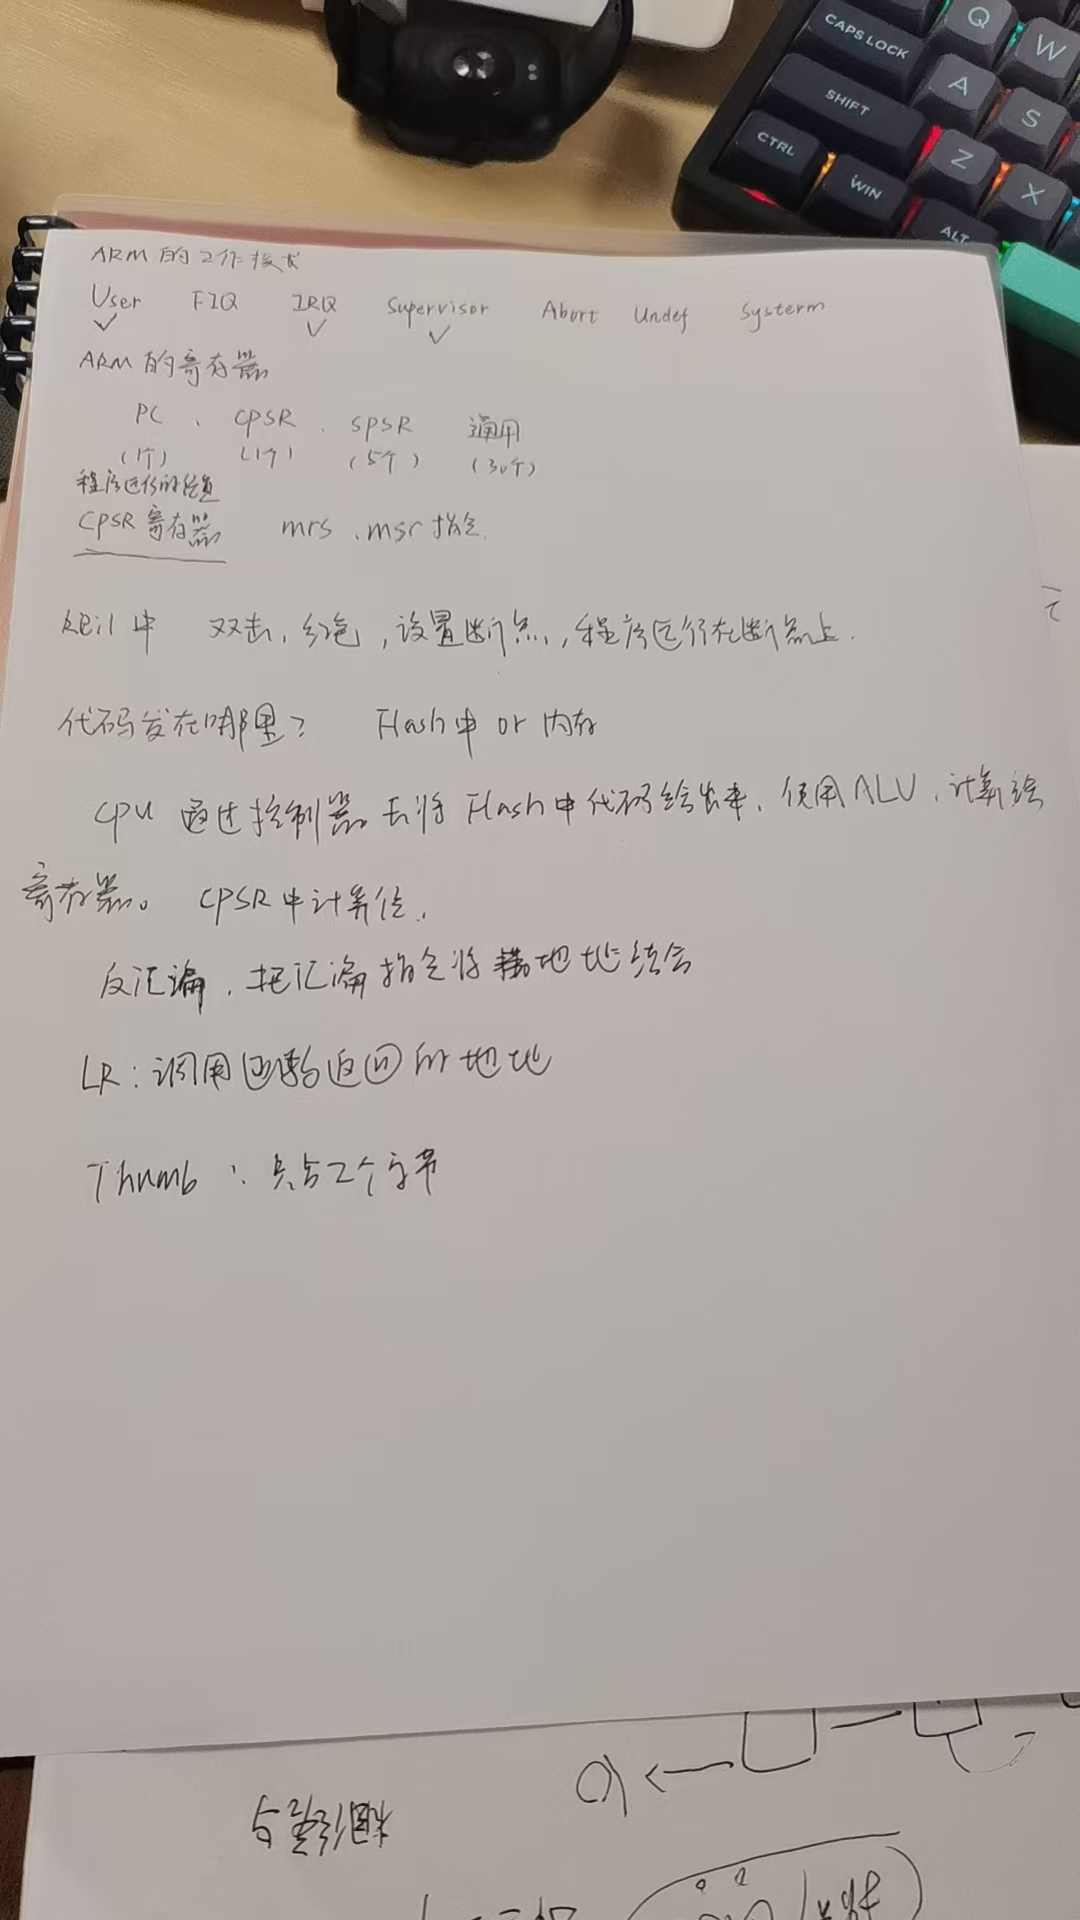 Q
W
CAPS LOCK
A
S
SHIFT
Z
X
CTRL
WIN
ALT
ARM 的工作模式
User FIQ IRQ Supervisor Abort Undef Systerm
ARM 的寄存器
PC 、 CPSR 、 SPSR 通用
(1个) (1个) (5个) (30个)
程序运行的位置
CPSR 寄存器 mrs 、msr 指令.
keil 中 双击, 红色, 设置断点, 程序运行在断点上.
代码发在哪里? Flash中 or 内存
CPU 通过控制器去将 Flash中代码给出来, 使用ALU, 计算给
寄存器。 CPSR中计算位.
反汇编, 把汇编指令将 地址结合
LR: 调用函数返回的地址
Thumb : 只占2个字节